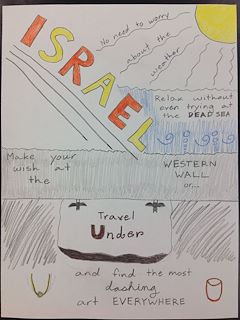 ISRAEL
No need to worry
about the
weather
Relax without
even trying at
the DEAD SEA
Make your
wish at
the
WESTERN
WALL
or...
Travel
Under
and find the most
dashing
art EVERYWHERE